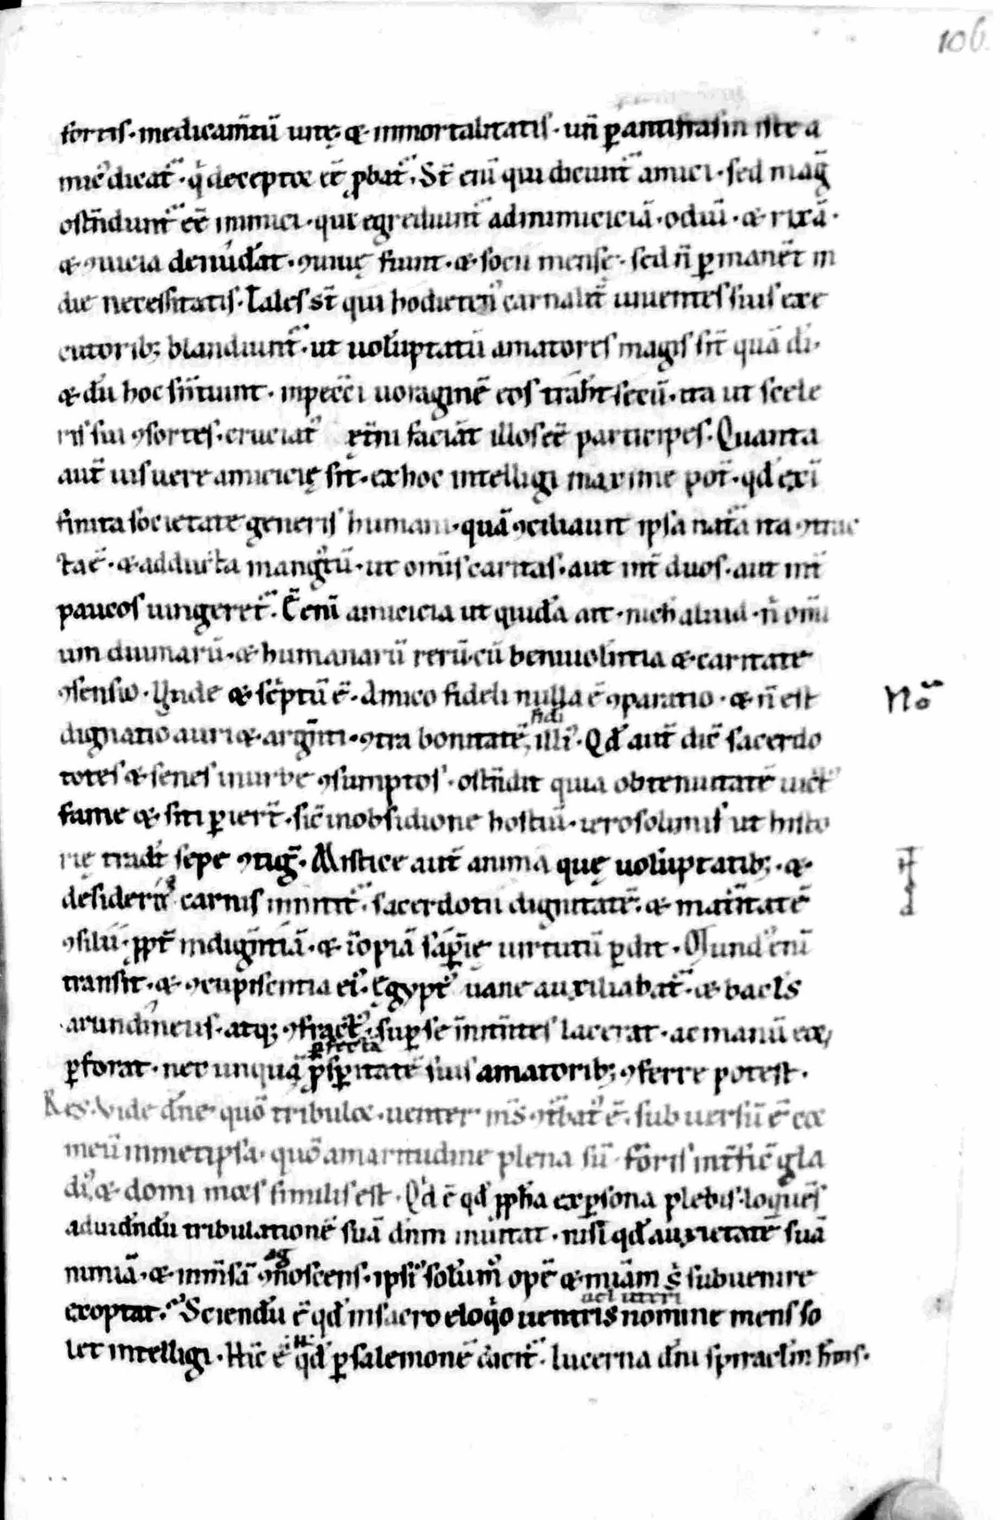 106.
fortis. medicam̄tū uitę & inmortalitatis. un̄ ꝑ antifrasin iste a
mic᷒ dicat᷑. q̇ deceptor eē ꝓbat᷑. St̄ eni̅ qui dicunt᷑ amici. sed mag̅
ostn̄dunt᷑ eē inimici. qui egrediunt᷑ ad inimiciciā. odiū. & rixā.
& ꝯuicia denudāt. ꝯuiuę fiunt. & socii mensę. sed n̄ ꝑmanēt in
die necessitatis. Tales st̄ qui hodie carnalit̄ uiuentes suis exe
cutorib; blandiunt᷑. ut uoluptatū amatores magis sīt quā di.
& dū hoc sn̄tiunt. in pecc̄i uoraginē eos trahūt secū. ita ut scele
ris sui ꝯsortes. cruciat᷒ et̄ni faciāt illos eē participes. Quanta
aut̄ uis uere amicicię sit. ex hoc intelligi maxime pot̄. qd̄ ex ī
finita societate generis humani. quā ꝯciliauit ipsa nat̄a ita ꝯtrac
ta ē. & adducta in angustū. ut omīs caritas. aut int̄ duos. aut int̄
paucos iungeret᷑. Ē eni̅ amicicia ut quidā ait. nich̄ aliud. n̄ omī
um diuinarū. & humanarū rerū. cū beniuoln̄tia & caritate
ꝯsensio. Unde & scptū ē. Amico fideli nulla ē ꝯparatio. & n̄ est
Nō
dignatio auri & argn̄ti. ꝯtra bonitatē fidei illi᷒. Qd̄ aut̄ dic̄ sacerdo
totes & senes in urbe ꝯsumptos. ostn̄dit quia ob tenuitatē uict᷒
fame & siti ꝑiert̄. sic̄ in obsidione hostiū. ierosolimis ut histo
rię tradt̄ sepe ꝯtig̅. Mistice aut̄ anima quę uoluptatib;. &
desideriis carnis innitit᷑. sacerdotii dignitatē. & maturitatē
ꝯsilii. ꝓpt̄ indign̄tiā. & inopiā sapn̄ię uirtutū ꝑdit. Mund᷒ eni̅
transit. & ꝯcupiscentia ei᷒. Egypt᷒ uane auxiliabat᷑. & bacl̄s
arundineus. atq; ꝯfract᷒. suꝑ se innitn̄tes lacerat. ac manū eoꝝ
ꝑforat. nec unquā ꝑfecta ꝓsꝑitatē suis amatorib; ꝯferre potest.
Res. Vide dn̄e quō tribulor. uenter m̄s ꝯt᷑bat᷒ ē. subuersū ē cor
meū in me ipsa. quō amaritudine plena sū. foris int̄fic̄ gla
di᷒. & domi mors similis est. Qd̄ ē qd̄ ꝓph̄a ex ꝑsona plebis loquēs
ad uidn̄dū tribulationē suā dn̄m inuitat. nisi qd̄ anxietatē suā
nimiā. & inm̄sā ꝯgnoscens. ipsi᷒ solum᷒ opē & miām sibi subuenire
exoptat. Sciendū ē qd̄ in sacro eloq̇o uentris uel uteri nomine mens so
let intelligi. Hic̄ ē qd̄ ꝑ salemonē dicit᷑. lucerna dn̄i spiraclm̄ hōis.